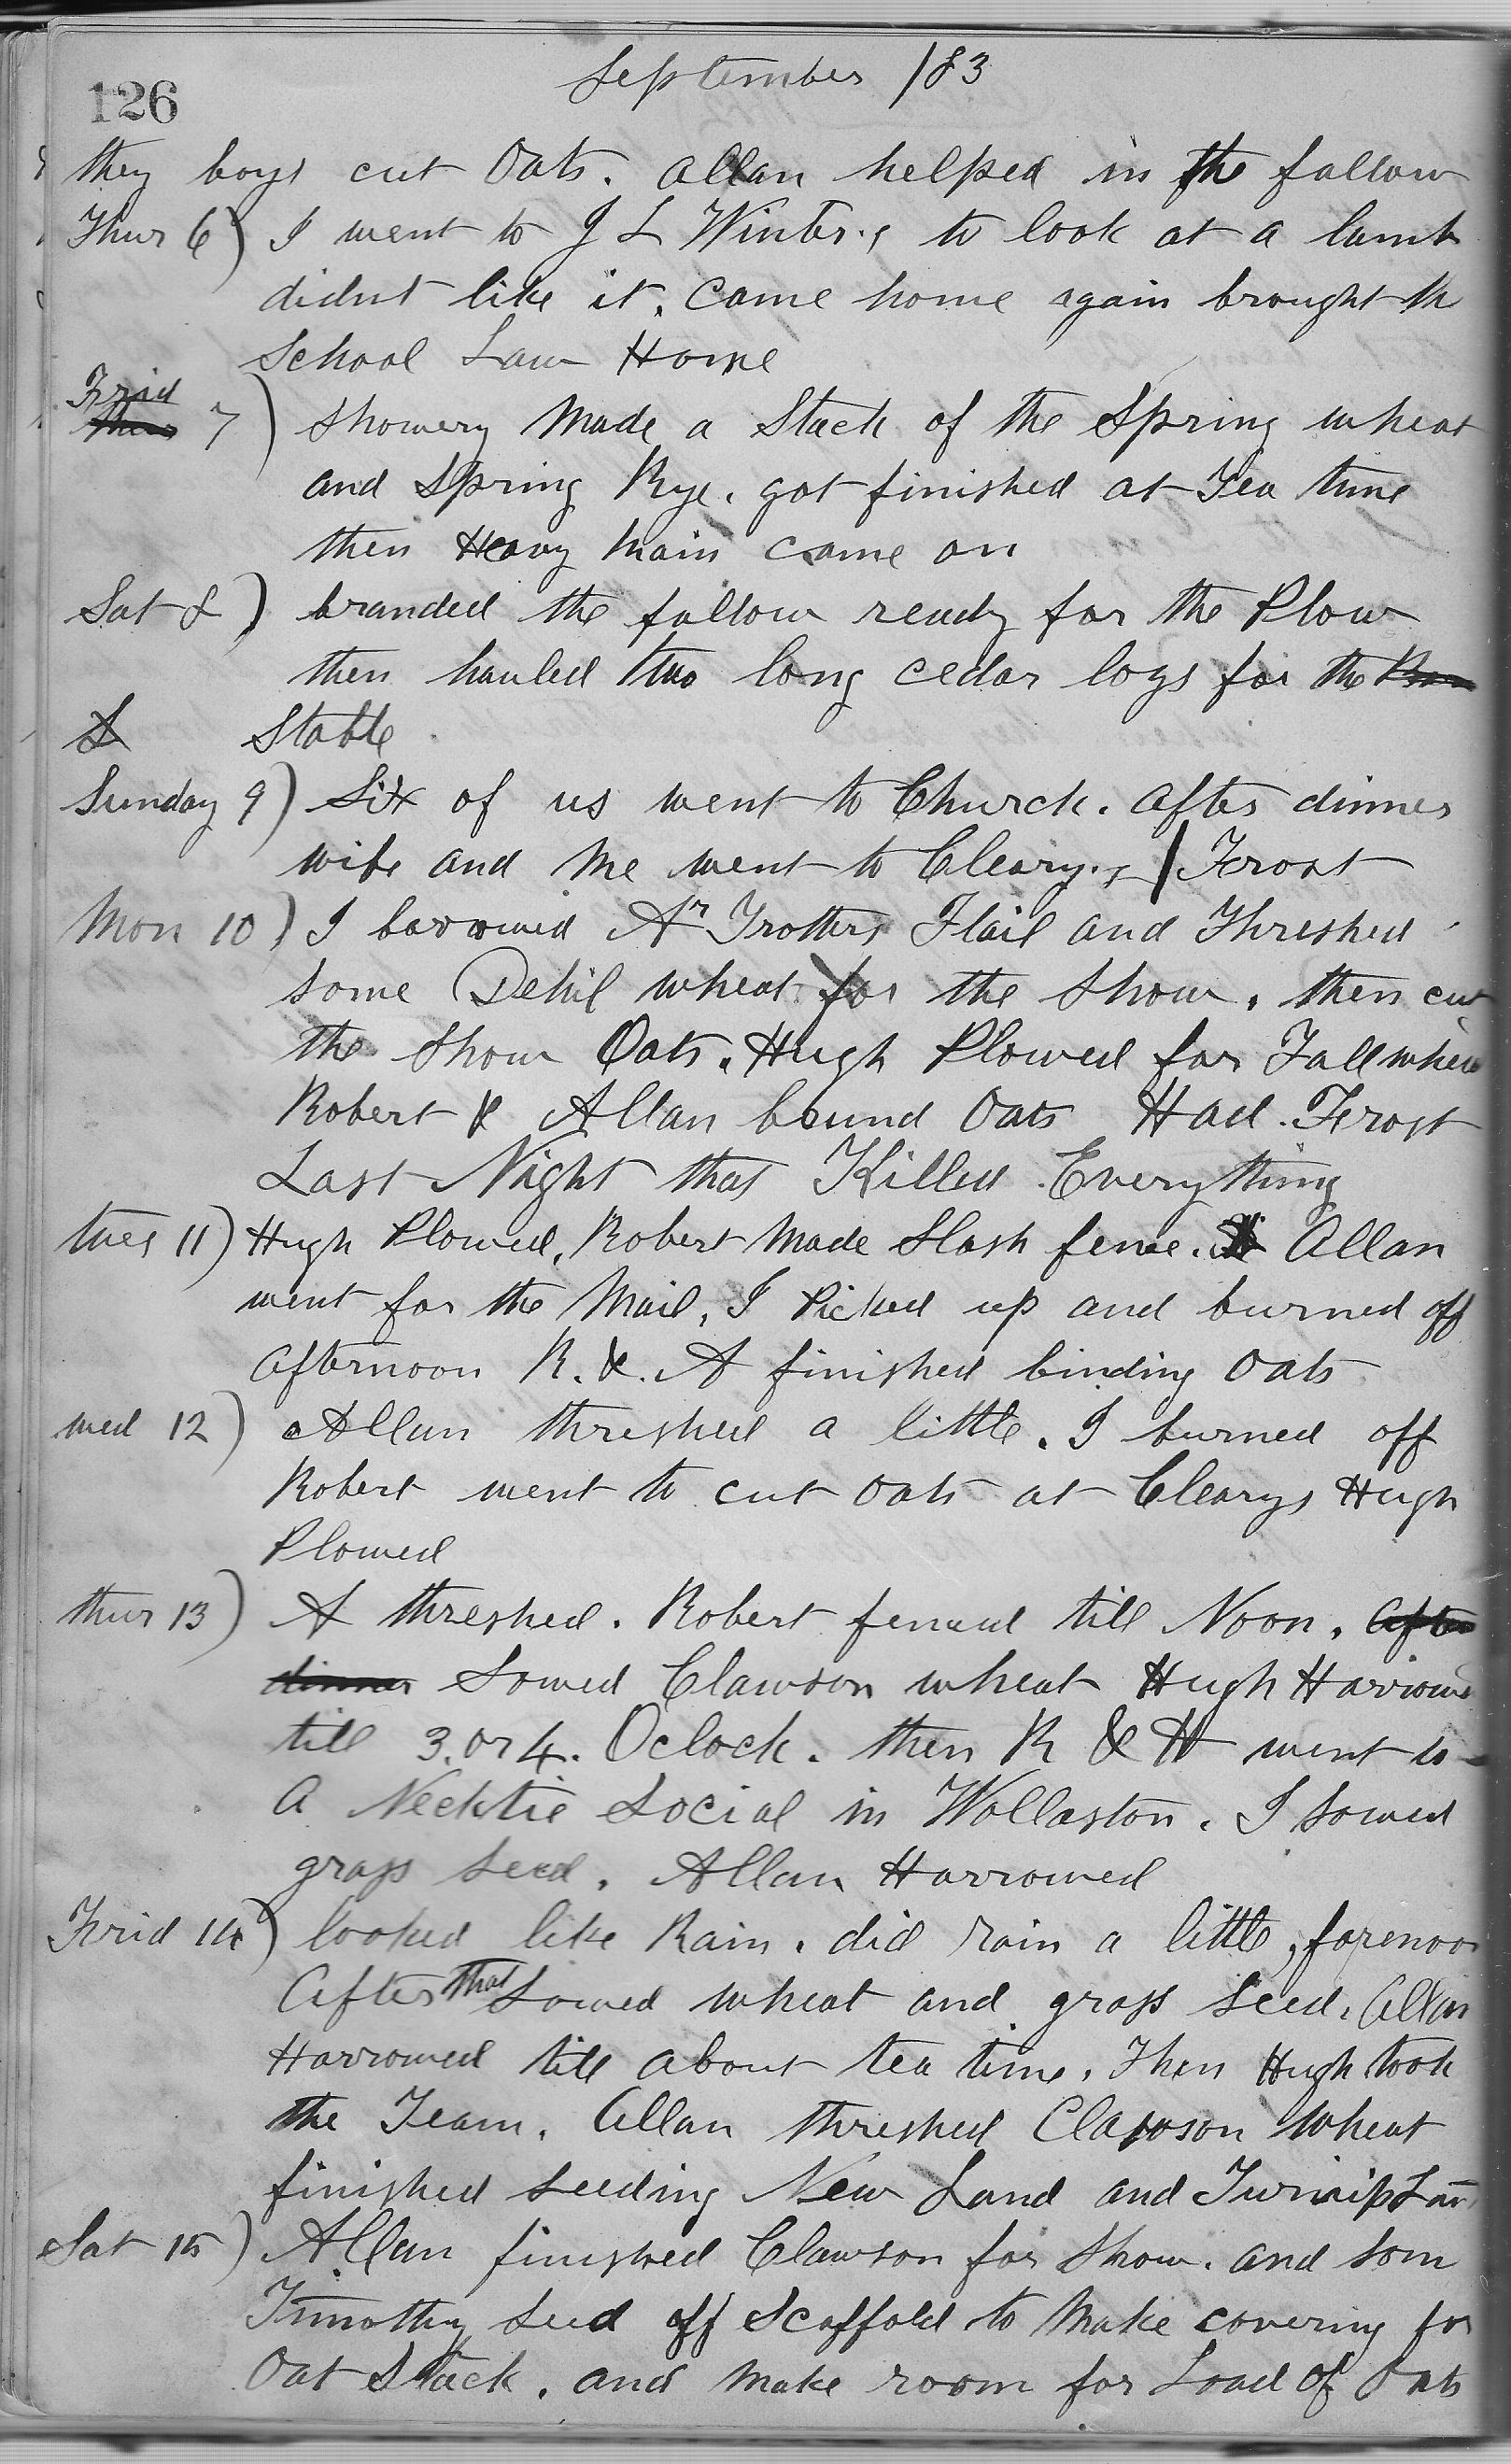 126
September /83
they boys cut Oats. Allan helped in the fallow
Thur 6) I went to J L Winters to look at a lamb
didnt like it. Came home again brought th
School Law Home
Frid
Thur 7) Showery Made a Stack of the Spring wheat
and Spring Rye. got finished at Tea time
then Heavy Rain came on
Sat 8) branded the fallow ready for the Plow
then hauled two long cedar logs for the Barn
S Stable
Sunday 9) Six of us went to Church. After dinner
wife and Me went to Clearys / Frost
Mon 10) I borrowed Ar Trotters Flail and Threshed
some Dehil wheat for the Show. then cut
the Show Oats. Hugh Plowed for Fall whea
Robert & Allan bound Oats Had Frost
Last Night that Killed Everything
tues 11) Hugh Plowed, Robert Made Slash fence. Allan
went for the Mail, I Picked up and burned off
Afternoon R. & A finished binding Oats
wed 12) Allan threshed a little. I burned off
Robert went to cut oats at Clearys Hugh
Plowed
thur 13) A threshed. Robert fenced till Noon. After
dinner Sowed Clawson wheat Hugh Harrowed
till 3. or 4. Oclock. then R & H went to
A Necktie Social in Wollaston. I Sowed
grass seed. Allan Harrowed
Frid 14) looked like Rain. did rain a little, forenoo
After that Sowed wheat and grass Seed. Allan
Harrowed till about tea time. Then Hugh took
the Team. Allan threshed Clawson Wheat
finished seeding New Land and Turnip Lan
Sat 15) Allan finished Clawson for Show. and som
Timothy Seed off Scaffold to Make covering for
Oat Stack. and Make room for Load of Oats